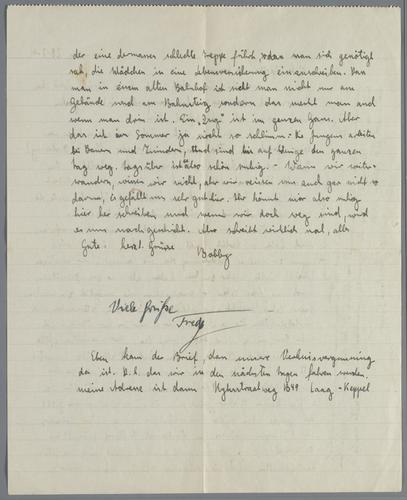 der eine dermassen schlechte Treppe führt, sodass man sich genötigt
sah, die Mädchen in eine Lebensversicherung einzuschreiben. Dass
man in einem alten Bahnhof ist sieht man nicht nur am
Gebäude und am Bahnsteig sondern das merkt man auch
wenn man drin ist. Ein "Zug" ist im ganzen Haus. Aber
das ist im Sommer ja nicht so schlimm. - Die Jungens arbeiten
bei Bauern und sind bis auf wenige den ganzen
Tag weg tagsüber ist aber schön ruhig. - Wann wir weiter
wandern, wissen wir nicht, aber wir reissen uns auch gar nicht
darum, es gefällt uns sehr gut hier. Ihr könnt mir also ruhig
hier her schreiben und wenn wir doch weg sind, wird
es uns nachgeschickt. Also schreibt wirklich mal, alles
Gute. herzl. Grüsse
Bobby
Viele Grüße
Fredy
Eben kam der Brief, dass unsere Reisevergünning
da ist. D.h. dass wir in den nächsten Tagen fahren werden.
meine Adresse ist dann Rijksstraatweg B49 Laag-Keppel